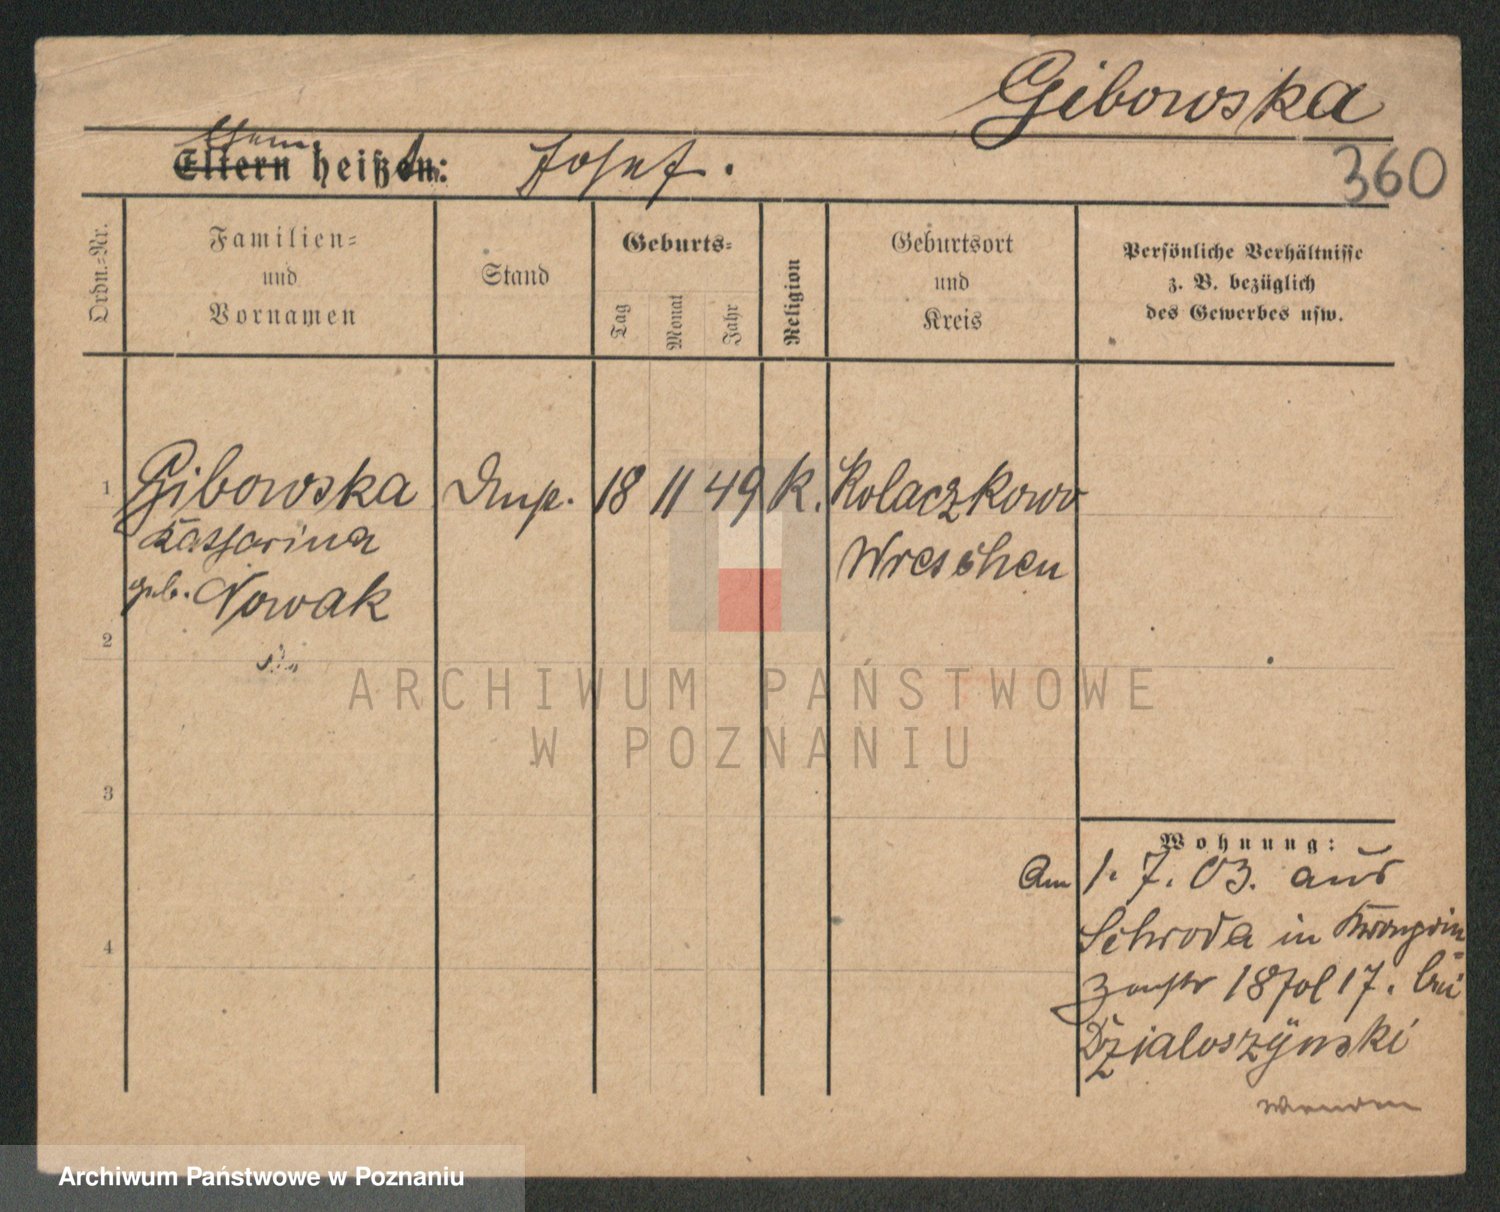 Gibowska
360
Ehem. heißt: Josef.
Ordn.-Nr.
Familien-
und
Vornamen
Stand
Geburts-
Tag
Monat
Jahr
Religion
Geburtsort
und
Kreis
Persönliche Verhältnisse
z. B. bezüglich
des Gewerbes usw.
1 Gibowska 18 11 49 K. Kolaczkowo
Katharina Wreschen
geb. Nowak
2
3
4
Wohnung:
Am 1. 7. 03. aus
Schroda in Kronprin
zenstr 18 Hof 17. bei
Dzialoszÿnski
wenden
ARCHIWUM PAŃSTWOWE
W POZNANIU
Archiwum Państwowe w Poznaniu